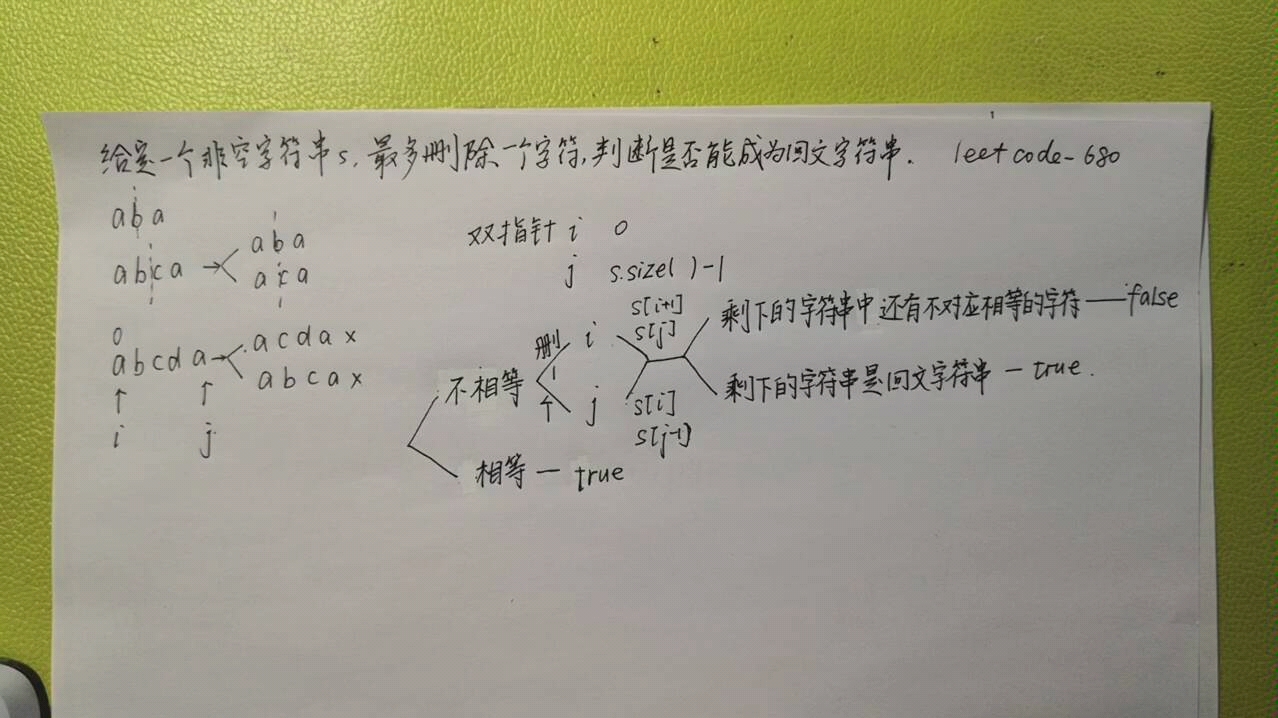 给定一个非空字符串s,最多删除一个字符,判断是否能成为回文字符串. leetcode-680
aba
abca → aba
aca
0
abcda → acda x
abca x
↑ ↑
i j
双指针 i 0
j s.size()-1
不相等
删1个
i s[i+1] s[j]
j s[i] s[j-1]
剩下的字符串中还有不对应相等的字符——false
剩下的字符串是回文字符串—true.
相等—true